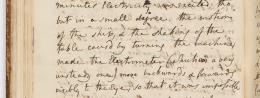 minutes electricity was excited, tho'
but in a small degree. the motion
of the ship, & the shaking of the
table caus'd by turning the machine,
made the electrometer (which is a very
unsteady one) move backwards & forwards
visibly to the Eye, so that it was impossible